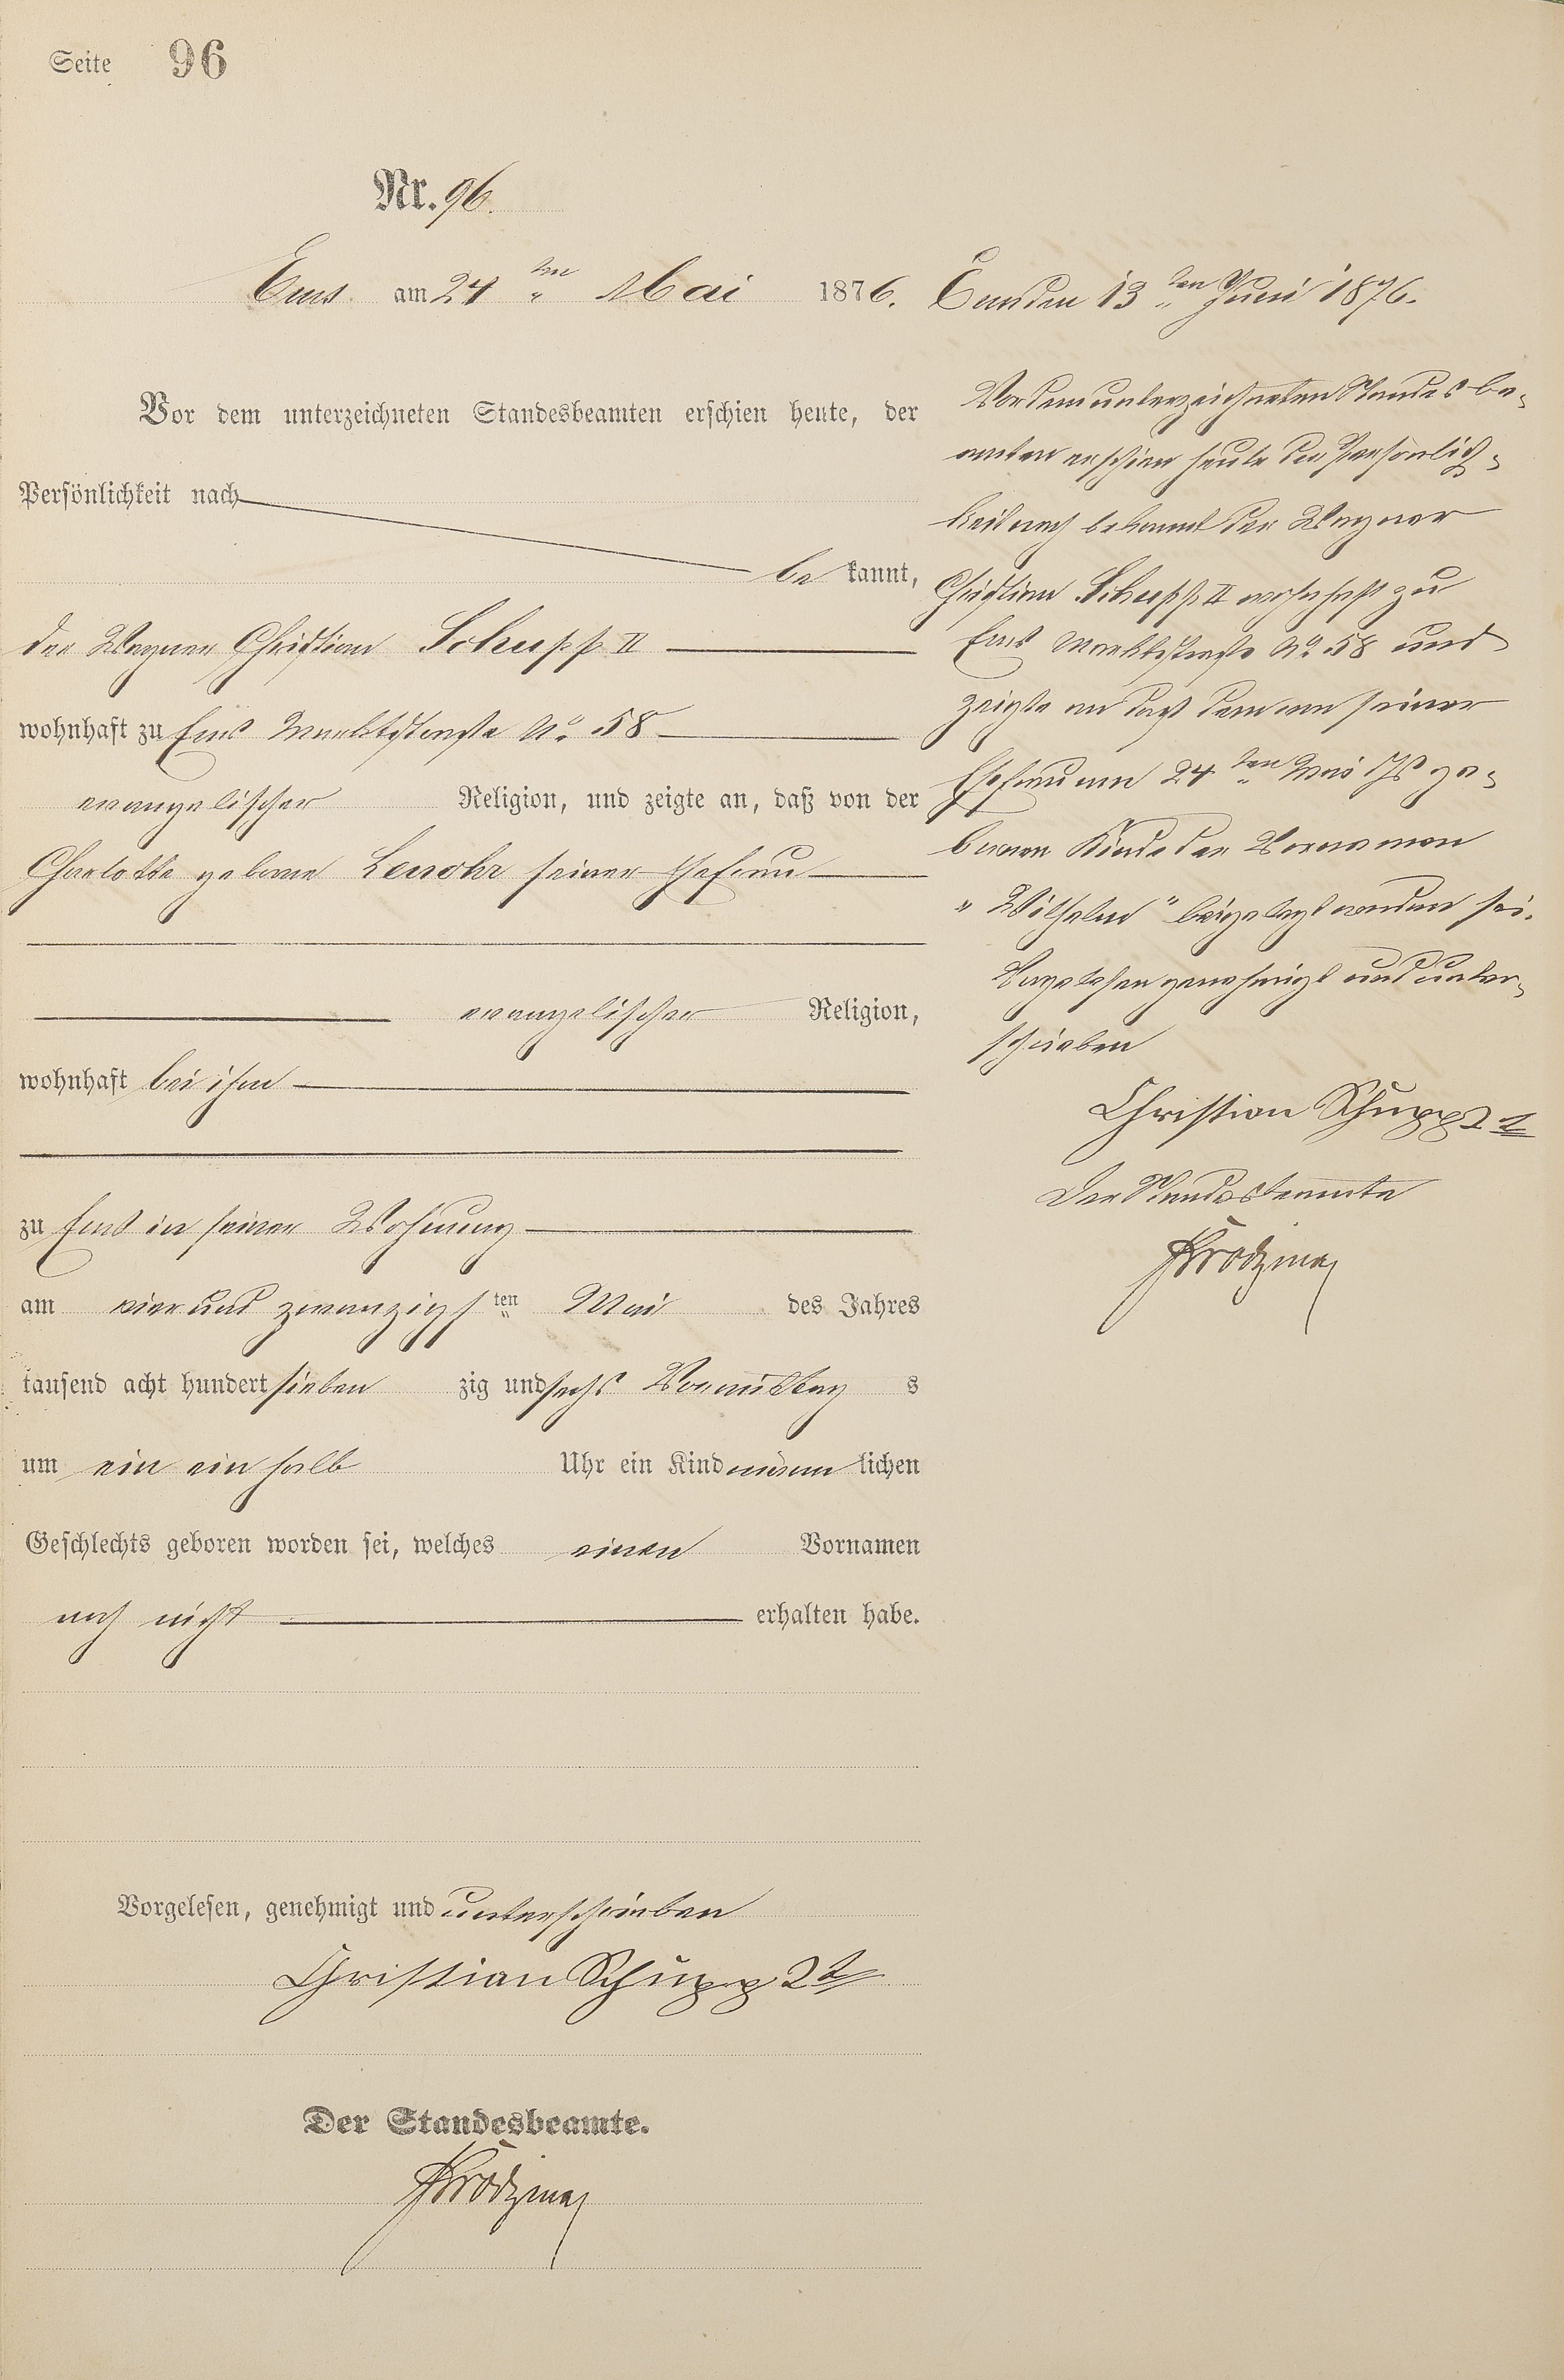 Seite 96
Nr. 96.
Ems am 24 ten Mai 1876.
Vor dem unterzeichneten Standesbeamten erschien heute, der
Persönlichkeit nach
be kannt,
der Wagner Christian Schupp II
wohnhaft zu Ems Marktstraße No. 58
evangelischer Religion, und zeigte an, daß von der
Charlotte geborne seiner Ehefrau
evangelischer Religion,
wohnhaft bei ihm
zu Ems in seiner Wohnung
am vier und zwanzigsten Mai des Jahres
tausend acht hundert sieben zig und sechs Vormittag s
um ein ein halb Uhr ein Kind männ lichen
Geschlechts geboren worden sei, welches einen Vornamen
noch nicht erhalten habe.
Vorgelesen, genehmigt und unterschrieben
Christian Schupp 2t
Der Standesbeamte.
Ems den 13 ten Juni 1876.
Vor dem unterzeichneten Standes be-
amten erschien heute der Persönlich-
keit nach bekannt der Wagner
Christian Schupp II wohnhaft zu
Ems Marktstraße No. 58 und
zeigte an daß dem von seiner
Ehefrau am 24 ten Mai Js ge-
bornen Kinde der Vornamen
"Wilhelm" beigelegt worden sei.
Vorgelesen genehmigt und unter-
schrieben
Christian Schupp 2 t
Der Standesbeamte